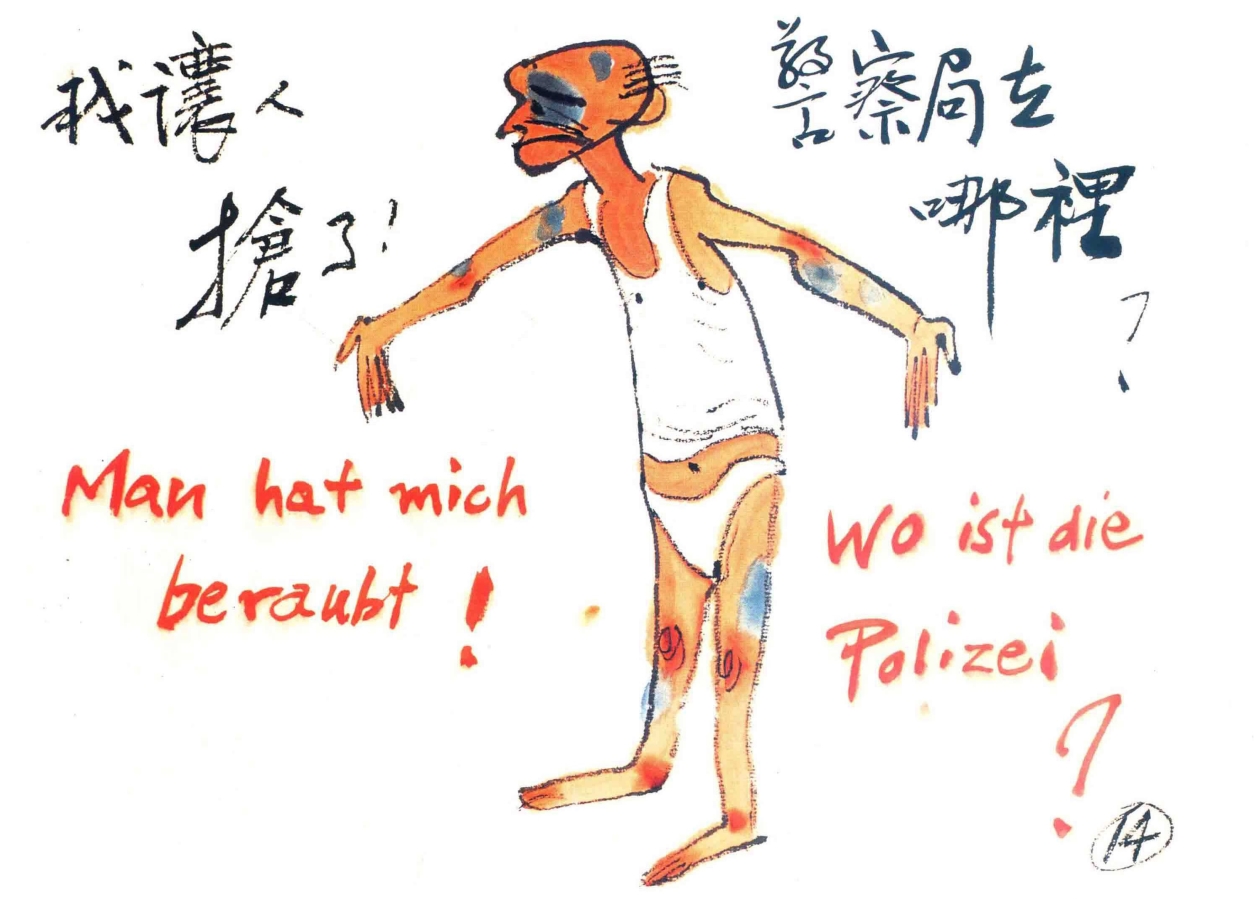 我讓人
搶了!
警察局在
哪裡
?
Man hat mich
beraubt!
Wo ist die
Polizei
?
14